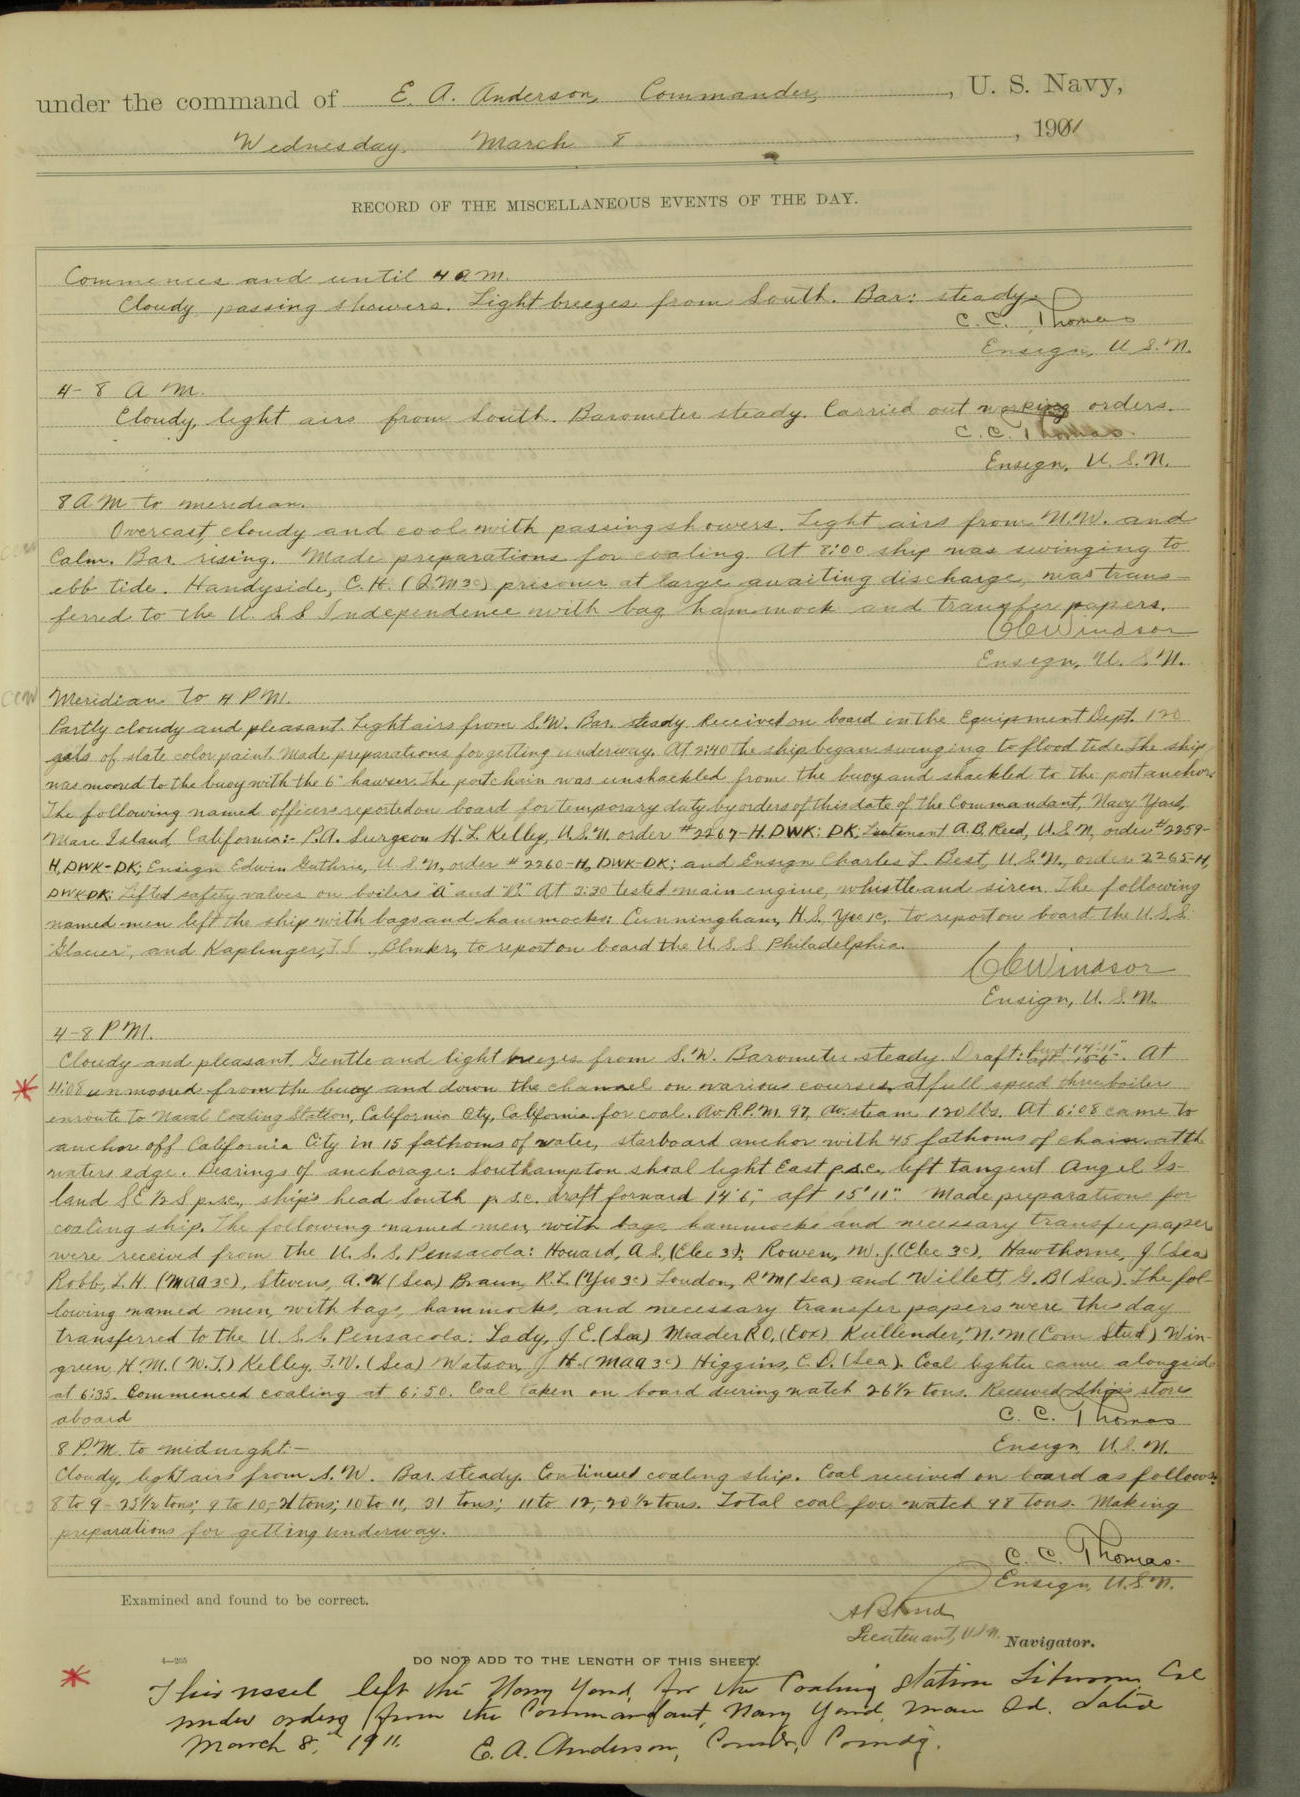 under the command of E. A. Anderson, Commander, , U. S. Navy,
Wednesday. March 8 , 1911
RECORD OF THE MISCELLANEOUS EVENTS OF THE DAY.
Commences and until 4 a m.
Cloudy passing showers. Light breezes from South. Bar: steady.
C. C. Thomas
Ensign, U. S. N.
4 - 8 A M.
Cloudy, light airs from South. Barometer steady. Carried out morning orders.
C. C. Thomas.
Ensign, U. S. N.
8 A M to meridian.
Overcast, cloudy and cool with passing showers. Light airs from N.W. and
Calm. Bar rising. Made preparations for coaling. At 8:00 ship was swinging to
ebb tide. Handyside, C. H. (Q.M 3c) prisoner at large awaiting discharge, was trans-
ferred to the U. S. S Independence with bag hammock and transfer papers.
CCWindsor
Ensign, U. S. N.
CCW
Meridian to 4 P M.
Partly cloudy and pleasant. Light airs from S.W. Bar. steady. Received on board in the Equipment Dept. 120
gals of slate color paint. Made preparations for getting underway. At 2:40 the ship began swinging to flood tide. The ship
was moored to the buoy with the 6" hawser. The port chain was unshackled from the buoy and shackled to the port anchor.
The following named officers reported on board for temporary duty by orders of this date of the Commandant, Navy Yard,
Mare Island, California:- P.A. Surgeon H. L. Kelley, U.S.N. order #2267-H.DWK: DK; Lieutenant A.B. Reed, U.S.N, order #2259-
H, DWK-DK; Ensign Edwin Guthrie, U. S. N, order # 2260-H, DWK-DK; and Ensign Charles L. Best, U.S.N., order 2265-H,
DWK-DK. Lifted safety valves on boilers "A" and "B." At 3:30 tested main engine, whistle and siren. The following
named men left the ship with bags and hammocks: Cunningham, H.S. Yeo 1c, to report on board the U.S.S.
"Glacier", and Kaplinger, J.S., Blmkr, to report on board the U. S. S Philadelphia.
CCWindsor
Ensign, U. S. N.
4-8 P M.
Cloudy and pleasant. Gentle and light breezes from S.W. Barometer steady. Draft: fwd 14'11" aft 15'6". At
4:08 unmoored from the buoy and down the channel on various courses, at full speed three boiler
enroute to Naval Coaling Station, California City, California for coal. Av R.P.M. 97, av. steam 120 lbs. At 6:08 came to
anchor off California City in 15 fathoms of water, starboard anchor with 45 fathoms of chain at th
waters edge. Bearings of anchorage: Southampton shoal light East p.s.c., left tangent Angel Is-
land SE 1/2 S p.s.c., ship's head South p. s.c. draft forward 14'6", aft 15'11". Made preparations for
coaling ship. The following named men, with bags hammocks and necessary transfer paper
were received from the U. S. S. Pensacola: Howard, A S. (Elec 3c); Rowen, W. J. (Elec 3c), Hawthorne, J (Sea)
Robb, L. H. (Maa 3c), Stevens, A. H (Sea) Braun, R.L. (Yeo 3c) Loudon, R M (Sea) and Willett, G. B (Sea). The fol-
lowing named men, with bags, hammocks, and necessary transfer papers were this day
transferred to the U. S. S. Pensacola. Lady, J E. (Sea) Meader R O, (Cox) Kullender, N. M (Com Stud) Win-
green, H. M. (W.T.) Kelley, F. V. (Sea) Watson, J. H. (Maa 3c) Higgins, C. D. (Sea). Coal lighter came alongside
at 6:35. Commenced coaling at 6:50. Coal taken on board during watch 26 1/2 tons. Received ship's stores
aboard
C. C. Thomas
Ensign U. S. N.
8 P.M. to midnight:—
Cloudy, light airs from S. W. Bar. steady. Continued coaling ship. Coal received on board as follows:
8 to 9 - 25 1/2 tons; 9 to 10,- 21 tons; 10 to 11, 31 tons; 11 to 12,- 20 1/2 tons. Total coal for watch 98 tons. Making
preparations for getting underway.
C. C. Thomas.
Ensign, U. S. N.
Examined and found to be correct.
Lieutenant, U S N. Navigator.
4—265
DO NOT ADD TO THE LENGTH OF THIS SHEET.
This vessel left the Navy Yard for the Coaling Station Tiburon, Cal
under orders from the Commandant, Navy Yard, Mare Id. dated
March 8, 1911. E. A. Anderson, Comdr, Comdg.